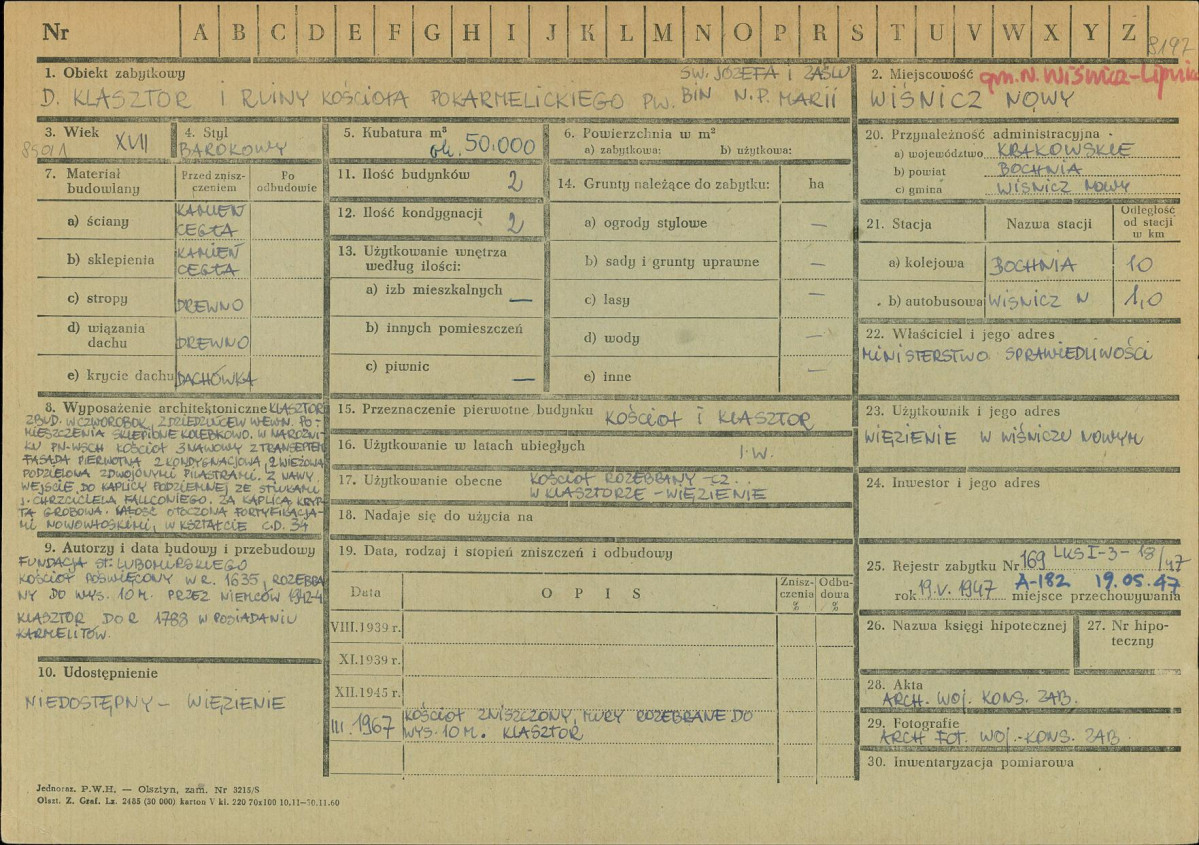 Nr A B C D E F G H I J K L M N O P R S T U V W X Y Z
8197
1. Obiekt zabytkowy
D. KLASZTOR I RUINY KOŚCIOŁA POKARMELICKIEGO PW. ŚW. JÓZEFA I ZAŚLU
BIN N.P. MARII
2. Miejscowość gm. N. Wiśnicz-Lipnica
WIŚNICZ NOWY
3. Wiek XVII
8501/1
4. Styl
BAROKOWY
5. Kubatura m³
ok. 50.000
6. Powierzchnia w m²
a) zabytkowa: b) użytkowa:
7. Materiał budowlany
Przed zniszczeniem
Po odbudowie
a) ściany KAMIEŃ CEGŁA
b) sklepienia KAMIEŃ CEGŁA
c) stropy DREWNO
d) wiązania dachu DREWNO
e) krycie dachu DACHÓWKA
8. Wyposażenie architektoniczne KLASZTOR
ZBUD. W CZWOROBOK, Z DZIEDZIŃCEM WEWN. PO-
MIESZCZENIA SKLEPIONE KOLEBKOWO. W NAROŻNI-
KU PN-WSCH KOŚCIÓŁ 3 NAWOWY Z TRANSEPTEM
FASADA PIERWOTNA 2 KONDYGNACJOWA, 2 WIEŻOWA
PODZIELONA ZDWOJONYMI PILASTRAMI. Z NAWY
WEJŚCIE DO KAPLICY PODZIEMNEJ ZE STIUKAMI
J. CHRZCICIELA FALCONIEGO. ZA KAPLICĄ KRYP-
TA GROBOWA. CAŁOŚĆ OTOCZONA FORTYFIKACJA-
MI NOWOWŁOSKIMI, W KSZTAŁCIE C.D. 34
9. Autorzy i data budowy i przebudowy
FUNDACJA ST. LUBOMIRSKIEGO
KOŚCIÓŁ POŚWIĘCONY W R. 1635, ROZEBRA
NY DO WYS. 10 M. PRZEZ NIEMCÓW 1942-4
KLASZTOR DO R 1783 W POSIADANIU
KARMELITÓW.
10. Udostępnienie
NIEDOSTĘPNY – WIĘZIENIE
11. Ilość budynków 2
12. Ilość kondygnacji 2
13. Użytkowanie wnętrza według ilości:
a) izb mieszkalnych —
b) innych pomieszczeń
c) piwnic —
14. Grunty należące do zabytku: ha
a) ogrody stylowe —
b) sady i grunty uprawne —
c) lasy —
d) wody —
e) inne —
15. Przeznaczenie pierwotne budynku KOŚCIÓŁ I KLASZTOR
16. Użytkowanie w latach ubiegłych J.W.
17. Użytkowanie obecne KOŚCIÓŁ ROZEBRANY CZ..
W KLASZTORZE – WIĘZIENIE
18. Nadaje się do użycia na
19. Data, rodzaj i stopień zniszczeń i odbudowy
Data OPIS Zniszczenia % Odbudowa %
VIII.1939 r.
XI.1939 r.
XII.1945 r.
III.1967 KOŚCIÓŁ ZNISZCZONY, MURY ROZEBRANE DO
WYS. 10 M. KLASZTOR
20. Przynależność administracyjna
a) województwo KRAKOWSKIE
b) powiat BOCHNIA
c) gmina WIŚNICZ NOWY
21. Stacja Nazwa stacji Odległość od stacji w km
a) kolejowa BOCHNIA 10
b) autobusowa WIŚNICZ N 1,0
22. Właściciel i jego adres
MINISTERSTWO SPRAWIEDLIWOŚCI
23. Użytkownik i jego adres
WIĘZIENIE W WIŚNICZU NOWYM
24. Inwestor i jego adres
25. Rejestr zabytku Nr 169 LKS I-3-18/47
A-182 19.05.47
rok 19.V.1947 miejsce przechowywania
26. Nazwa księgi hipotecznej
27. Nr hipoteczny
28. Akta
ARCH. WOJ. KONS. ZAB.
29. Fotografie
ARCH FOT. WOJ.-KONS. ZAB.
30. Inwentaryzacja pomiarowa
Jednoraz. P.W.H. — Olsztyn, zam. Nr 3215/S
Olszt. Z. Graf. Lz. 2485 (30 000) karton V kl. 220 70x100 10.11—30.11.60